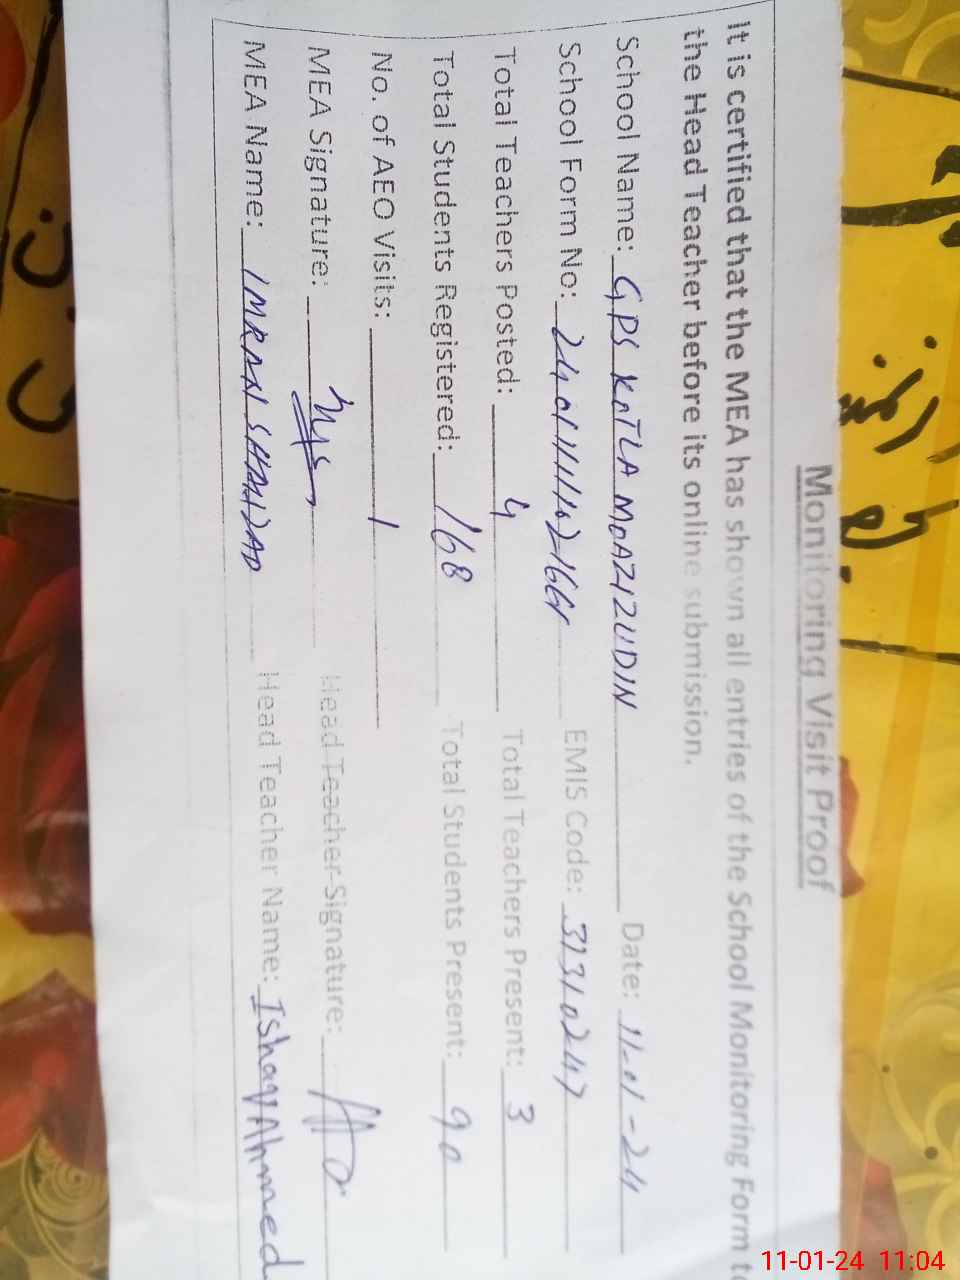 Monitoring Visit Proof
It is certified that the MEA has shown all entries of the School Monitoring Form to
the Head Teacher before its online submission.
School Name: GPS KATLA MOAZIZUDIN Date: 11-01-24
School Form No: EMIS Code: 31310247
Total Teachers Posted: 4 Total Teachers Present: 3
Total Students Registered: 168 Total Students Present: 90
No. of AEO Visits: 1
MEA Signature: Head Teacher Signature:
MEA Name: IMRAN SHAHZAD Head Teacher Name: Ishaq Ahmed
11-01-24 11:04